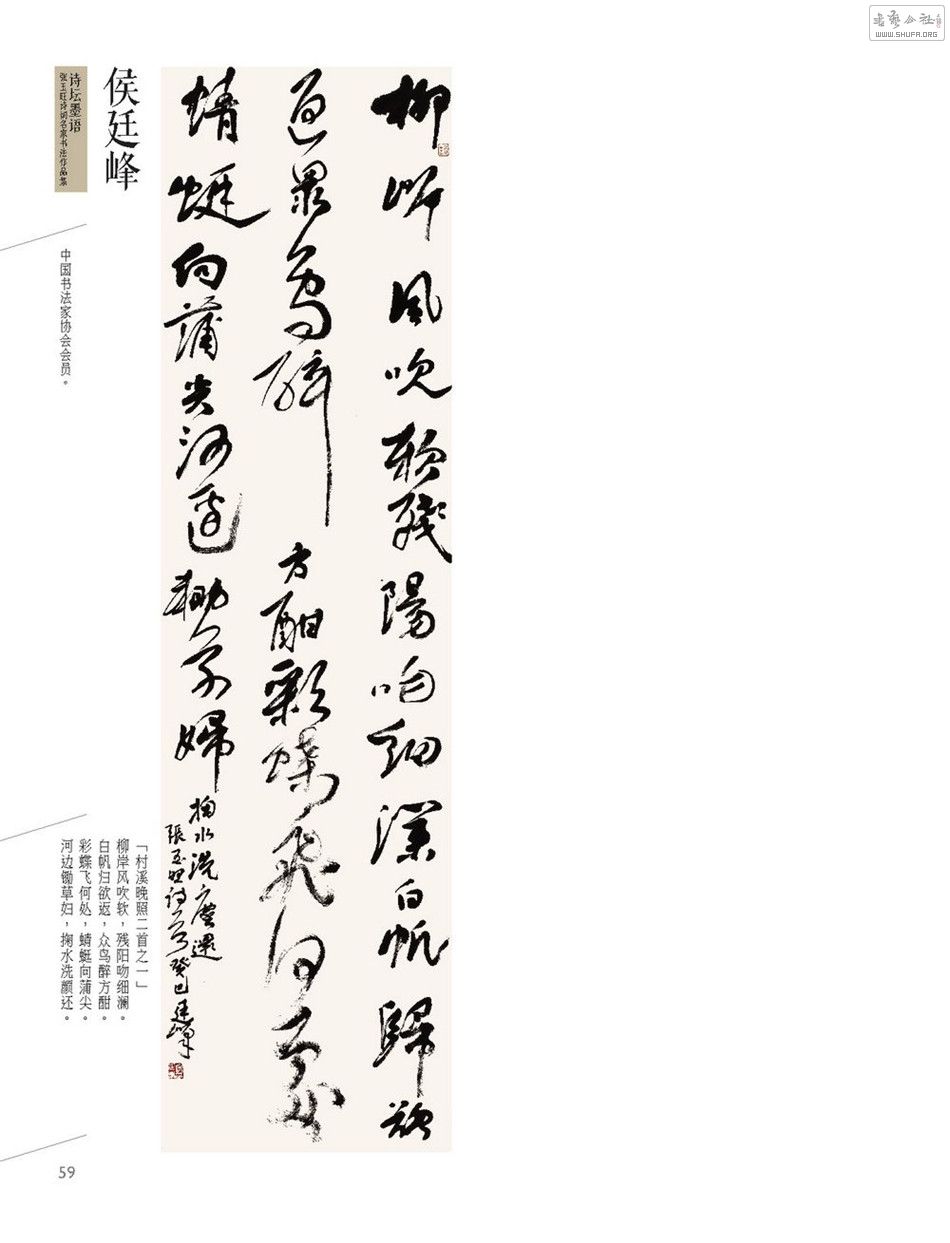 书艺公社
WWW.SHUFA.ORG
柳岸風吹軟殘陽吻細瀾白帆歸欲
返眾鳥醉方酣彩蝶飛何處
蜻蜓向蒲尖河邊鋤草婦
掬水洗塵還
張玉旺詩癸巳廷峰
侯廷峰
诗坛墨语
张玉旺诗词名家书法作品集
中国书法家协会会员。
「村溪晚照二首之一」
柳岸风吹软，残阳吻细澜。
白帆归欲返，众鸟醉方酣。
彩蝶飞何处，蜻蜓向蒲尖。
河边锄草妇，掬水洗颜还。
59